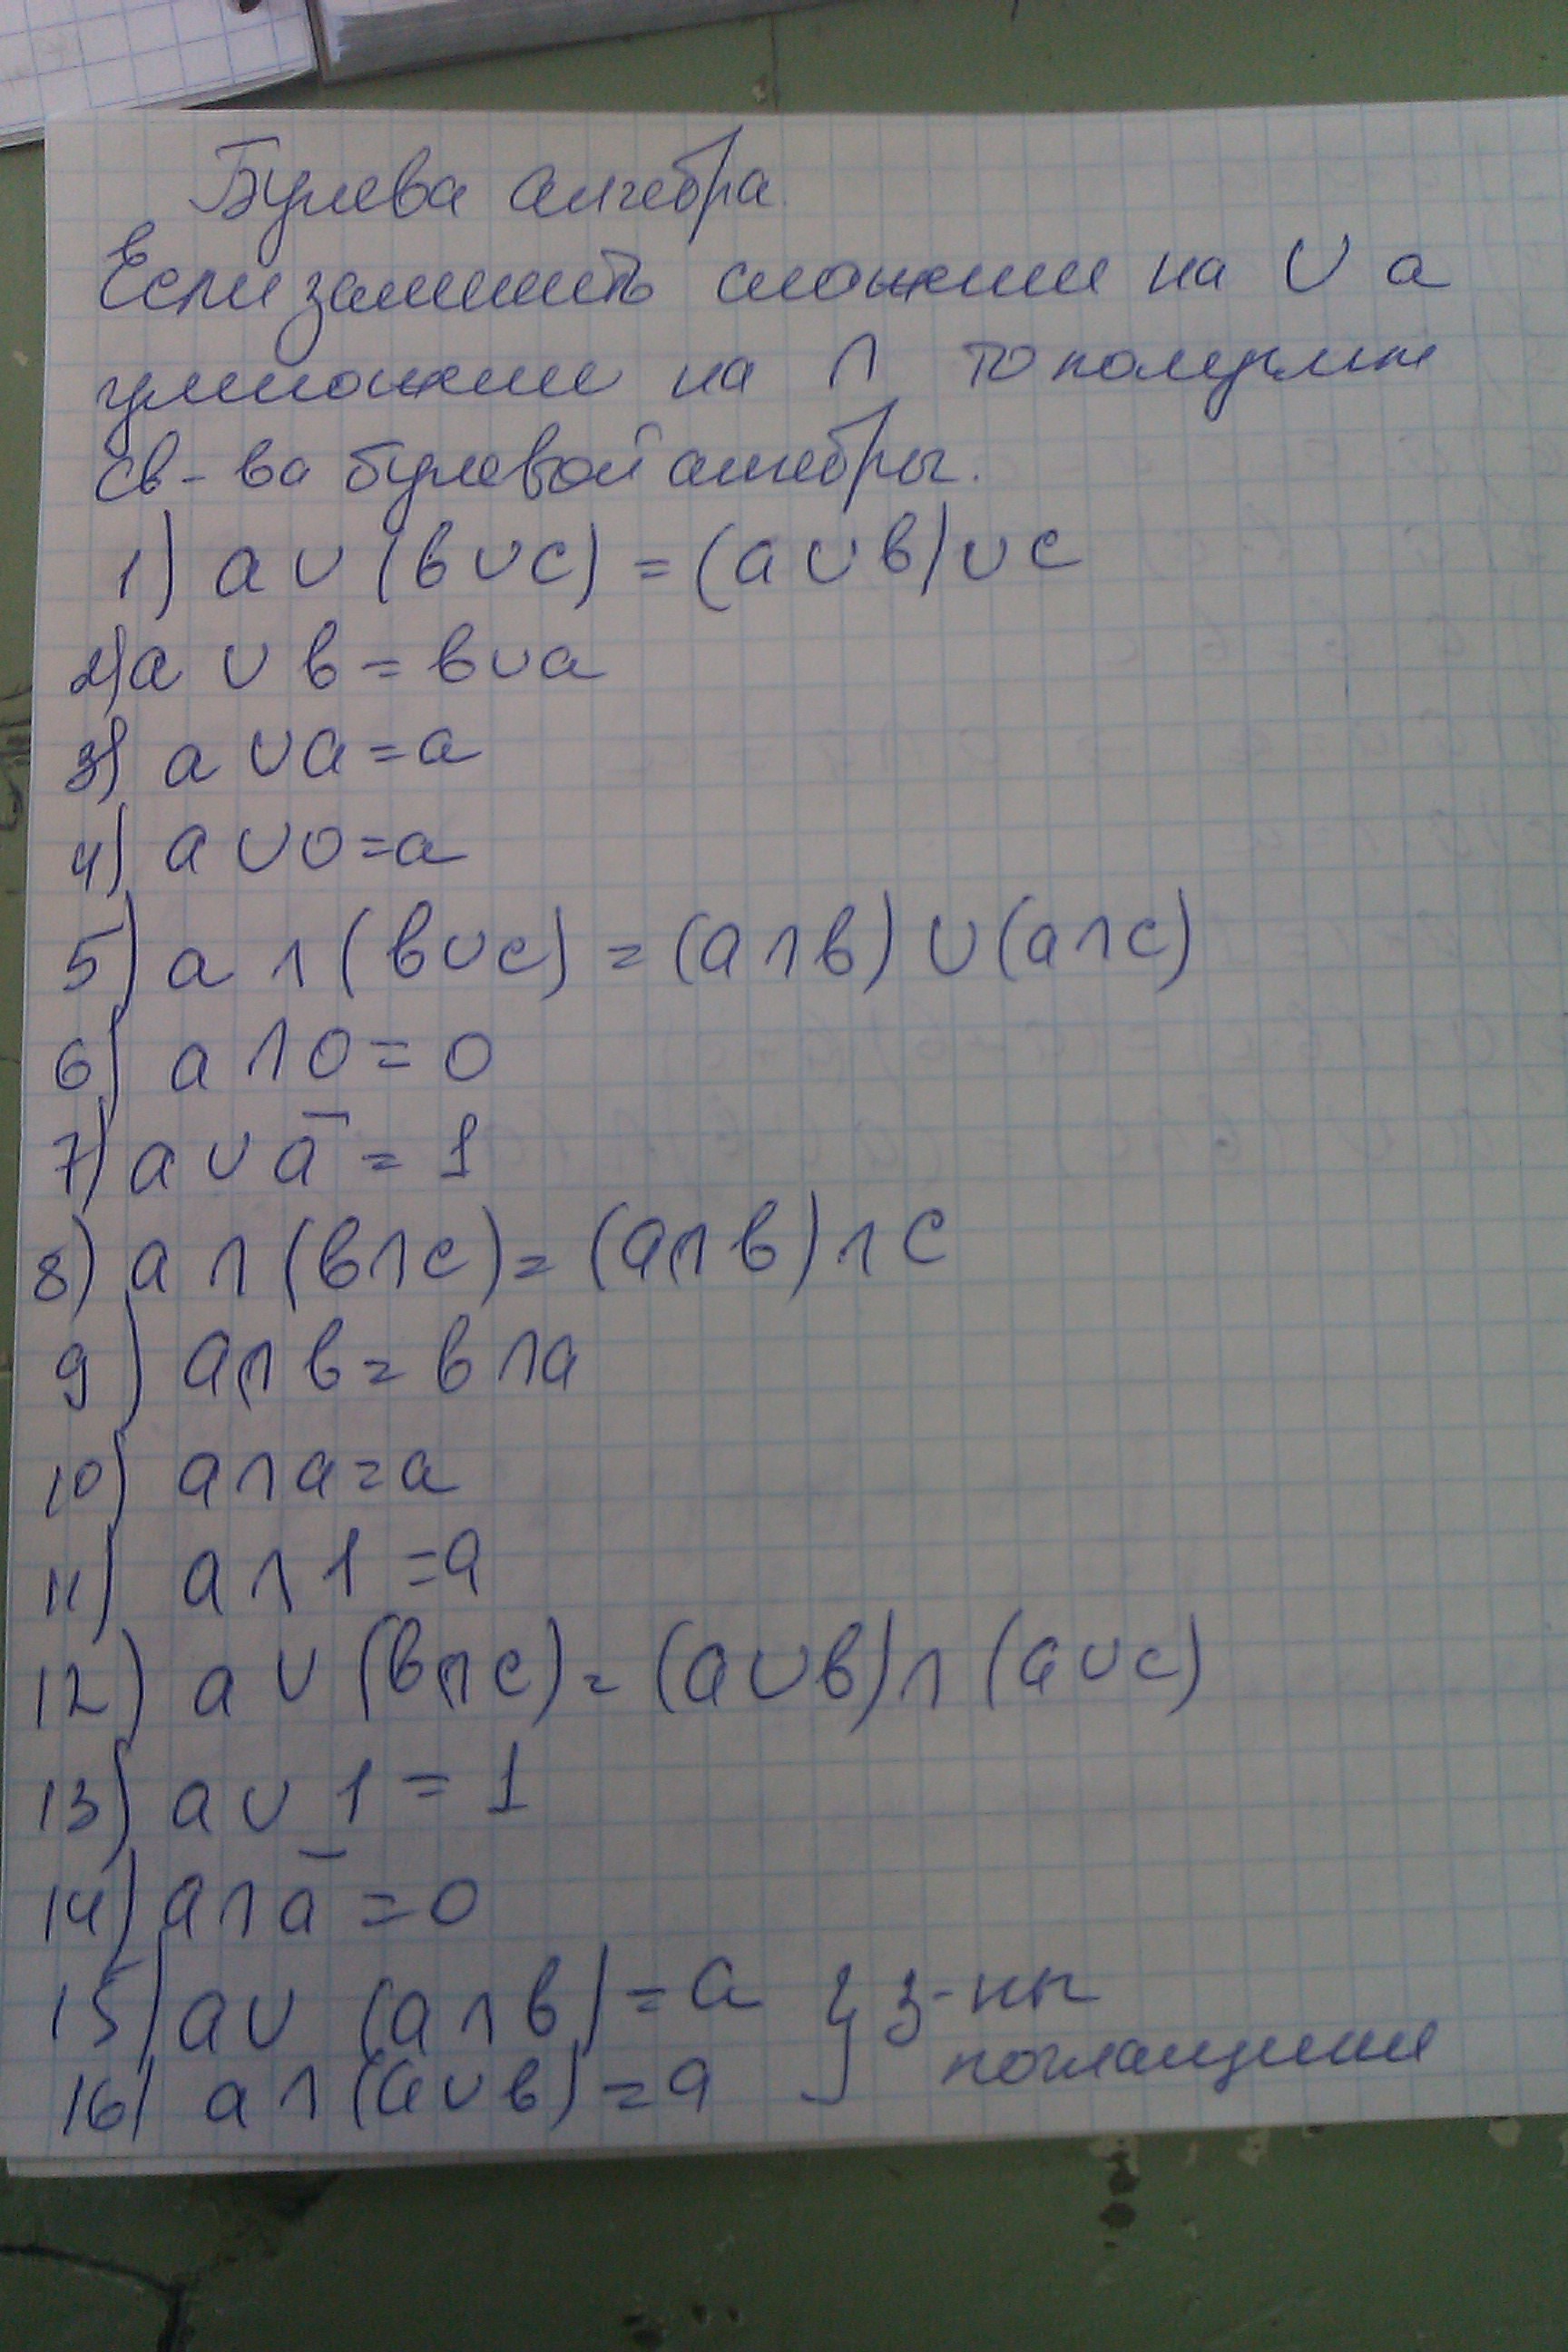 Булева алгебра.
Если заменить сложение на ∪ а
умножение на ∩ то получим
св-ва булевой алгебры.
1) a ∪ (b ∪ c) = (a ∪ b) ∪ c
2) a ∪ b = b ∪ a
3) a ∪ a = a
4) a ∪ 0 = a
5) a ∩ (b ∪ c) = (a ∩ b) ∪ (a ∩ c)
6) a ∩ 0 = 0
7) a ∪ ā = 1
8) a ∩ (b ∩ c) = (a ∩ b) ∩ c
9) a ∩ b = b ∩ a
10) a ∩ a = a
11) a ∩ 1 = a
12) a ∪ (b ∩ c) = (a ∪ b) ∩ (a ∪ c)
13) a ∪ 1 = 1
14) a ∩ ā = 0
15) a ∪ (a ∩ b) = a } з-ны
16) a ∩ (a ∪ b) = a поглащения